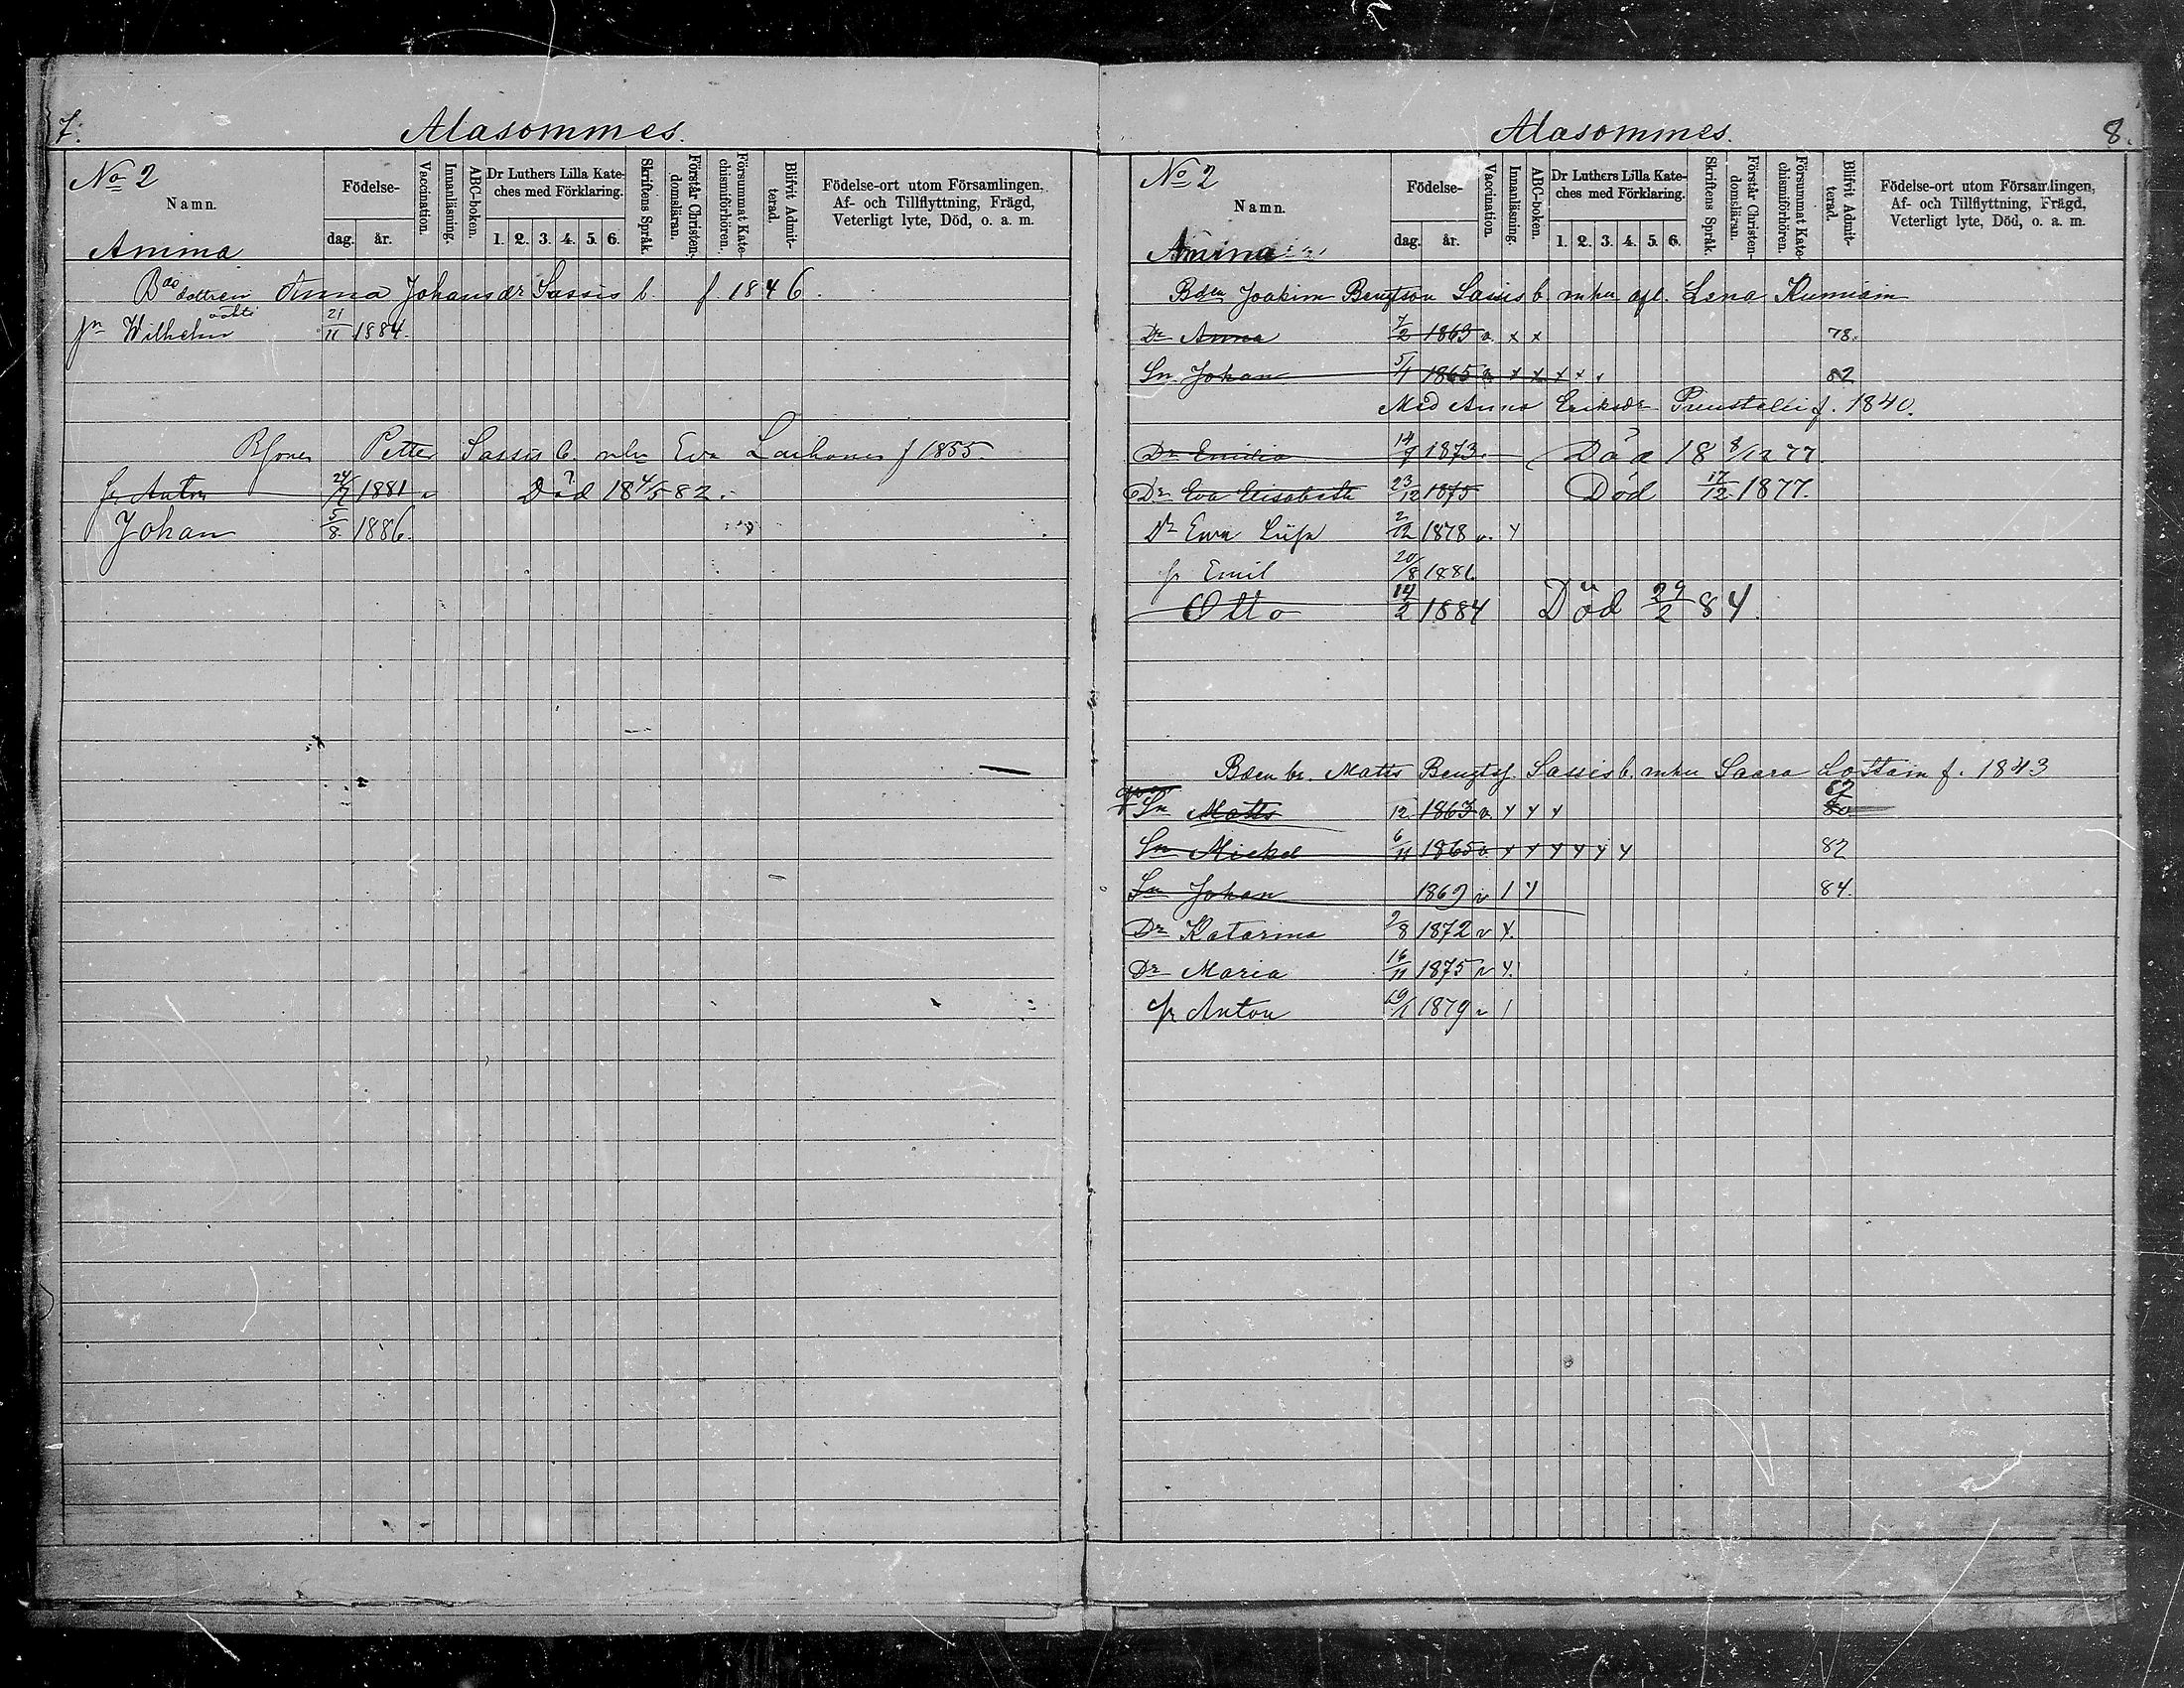 7.
Alasommes.
No 2
Namn.
Födelse-
dag. år.
Vaccination.
Innanläsning.
ABC-boken.
Dr Luthers Lilla Kateches med Förklaring.
1. 2. 3. 4. 5. 6.
Skriftens Språk.
Förstår Christendomsläran.
Försummat Katechismiförhören.
Blifvit Admitterad.
Födelse-ort utom Församlingen,
Af- och Tillflyttning, Frägd,
Veterligt lyte, Död, o. a. m.
Anima
dottren Anna Johansdr Sassis b. f. 1846.
Wilhelm 21/11 1884.
Petter Sassis b. mhu Eva Laihonen f 1855.
Anton 24/7 1881 v Död 18 4/5 82.
Johan 5/8. 1886.
Alasommes.
8.
No 2
Namn.
Födelse-
dag. år.
Vaccination.
Innanläsning.
ABC-boken.
Dr Luthers Lilla Kateches med Förklaring.
1. 2. 3. 4. 5. 6.
Skriftens Språk.
Förstår Christendomsläran.
Försummat Katechismiförhören.
Blifvit Admitterad.
Födelse-ort utom Församlingen,
Af- och Tillflyttning, Frägd,
Veterligt lyte, Död, o. a. m.
Anima
Bden Joakim Bengtson Sassis b mhu afl. Lena
Dr Anna 7/2 1863 v. x x 78.
Sn. Johan 5/1 1865 v x x x x 82
Med Anna Eriksdr f. 1840.
Dr Emilia 14/9 1873. Död 18 8/12 77
Dr Eva Elisabeth 23/12 1875 Död 17/12. 1877.
Dr Eva Lisa 2/12 1878 v. x
Emil 20/8 1881.
Otto 14/2 1884 Död 29/2 84.
Bden br. Matts Bengts. Sassis b. mhu Saara f. 1843
Sn Matts 12 1863 v x x x 82 80
Sn Mickel 6/11 1865 v. x x x x x x 82
Sn Johan 1869 v 1 x 84.
Dr Katarina 2/8 1872 v x.
Dr Maria 16/11 1875 v x.
Anton 19/1 1879 v 1